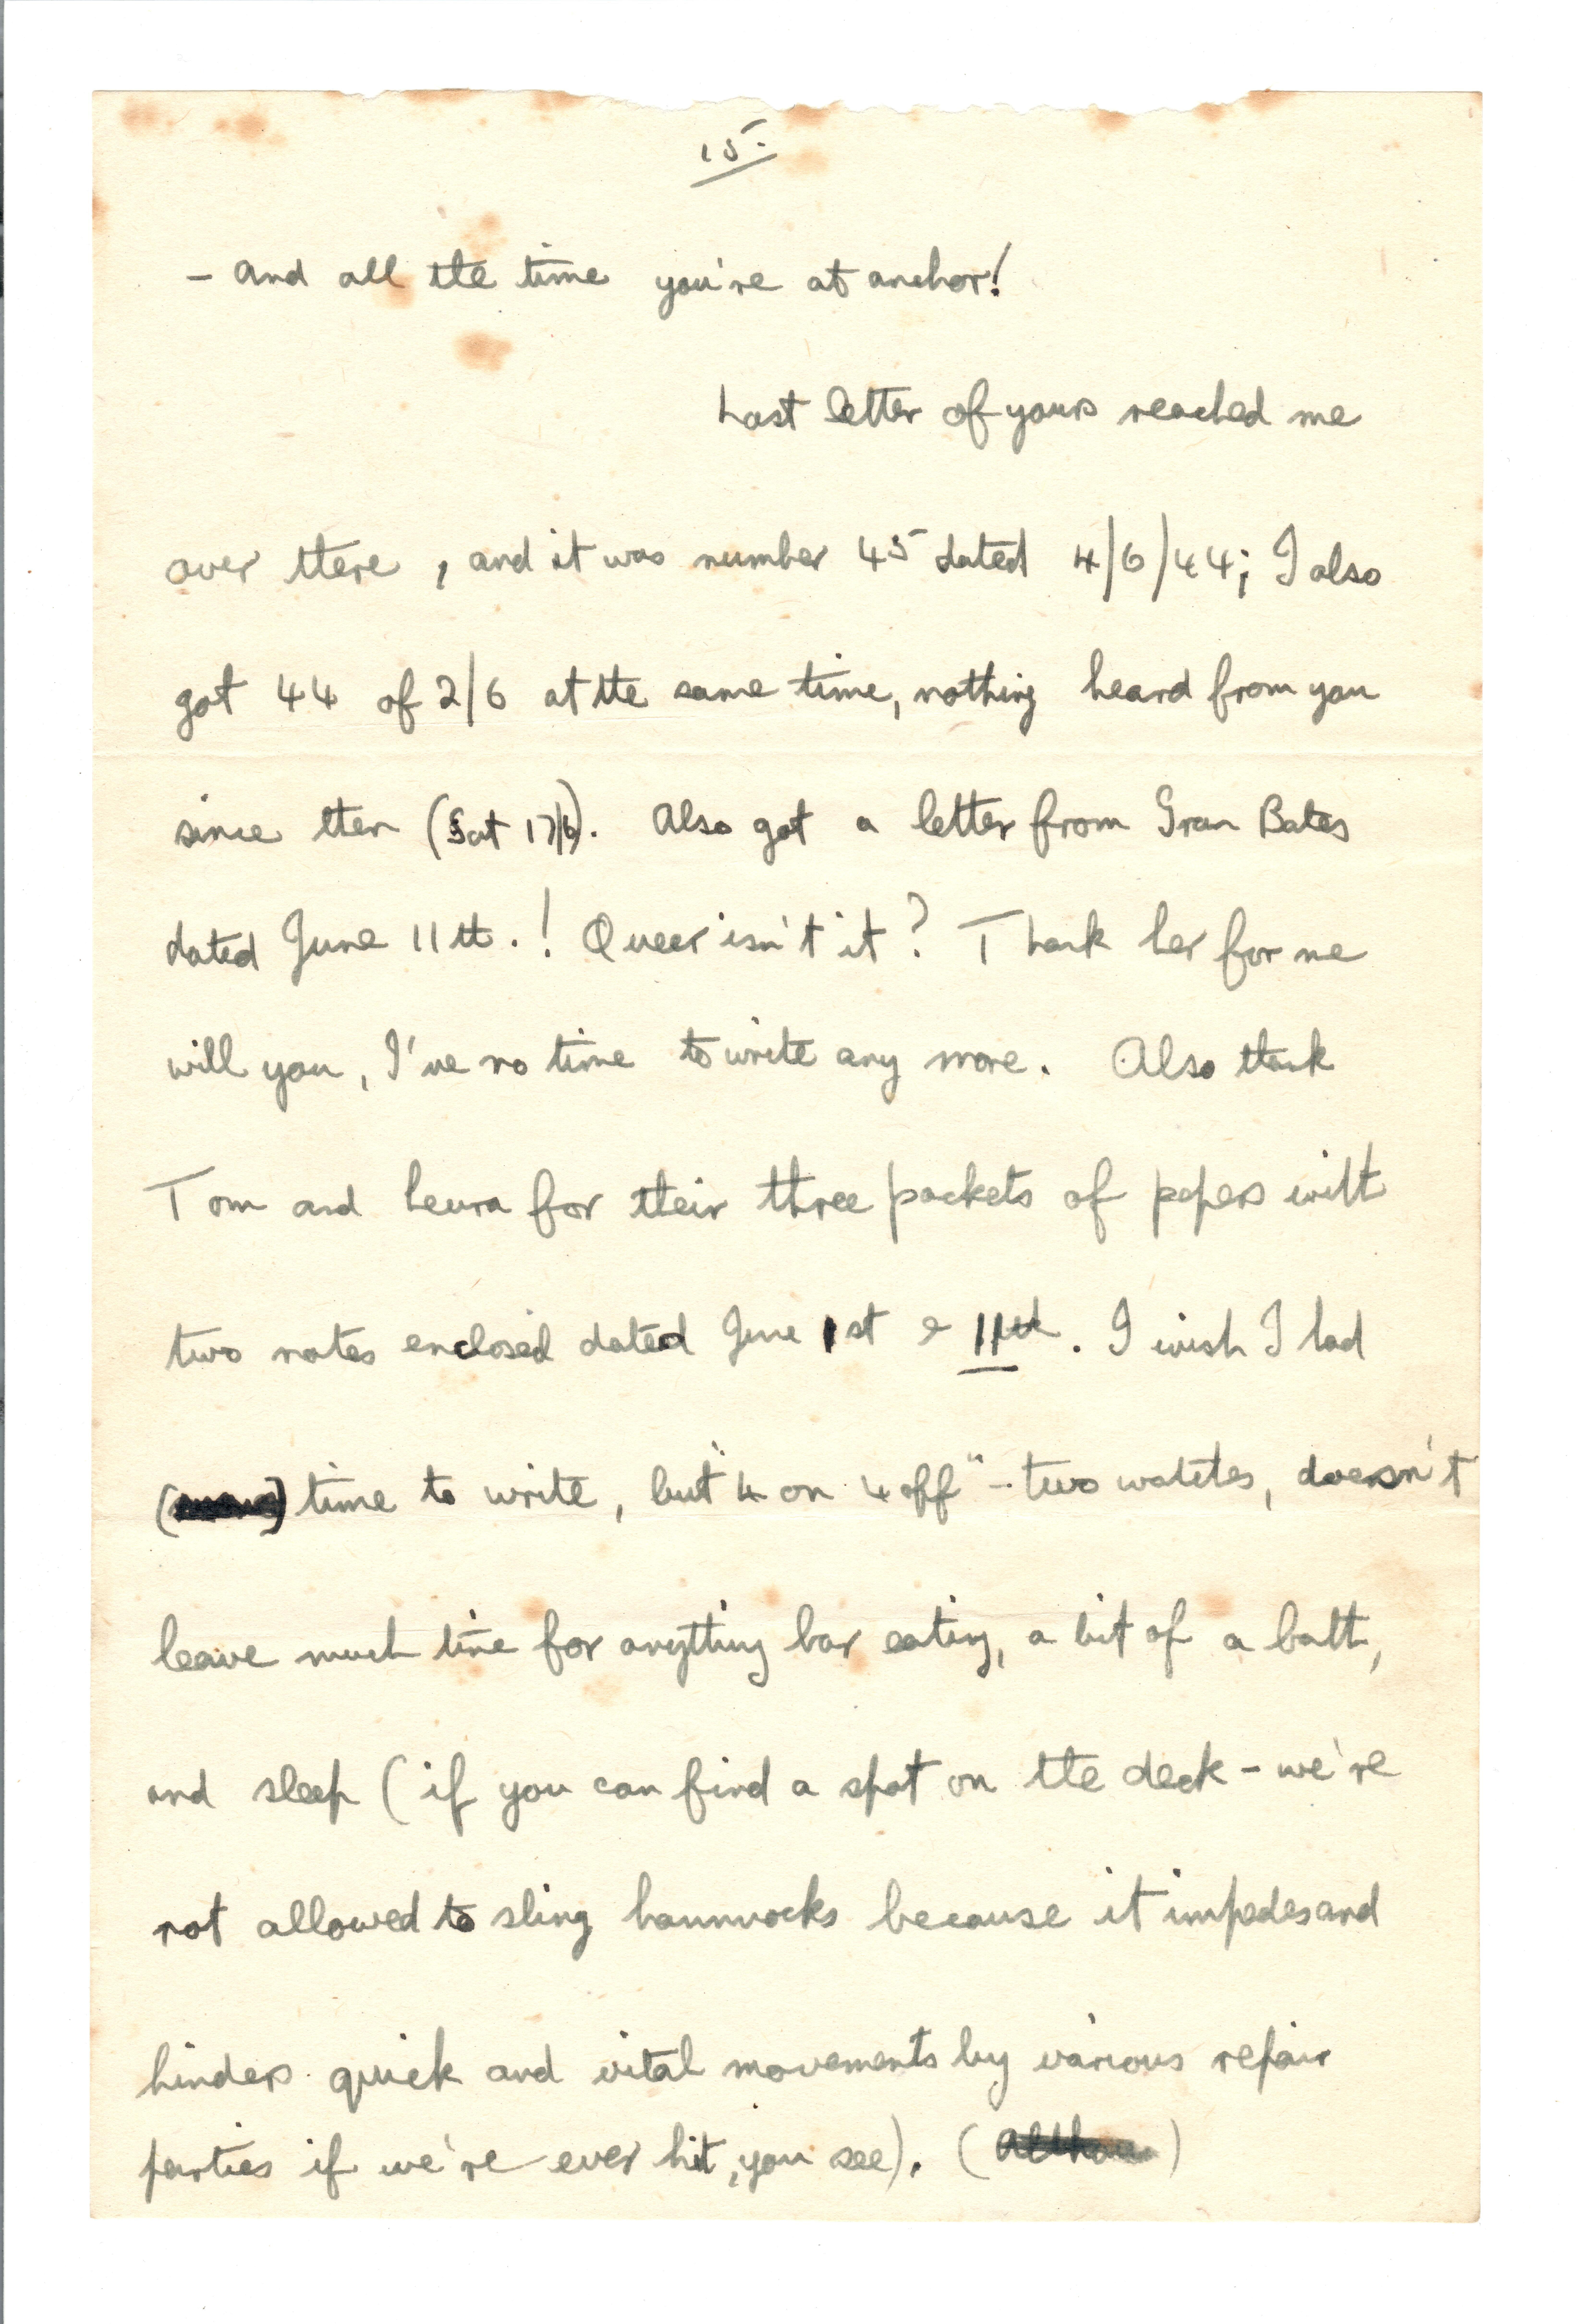 15.
- And all the time you're at anchor!
Last letter of yours reached me
over there, and it was number 45 dated 4/6/44; I also
got 44 of 2/6 at the same time, nothing heard from you
since then (Sat 17/6). Also got a letter from Gran Bates
dated June 11th.! Queer isn't it? Thank her for me
will you, I've no time to write any more. Also thank
Tom and Leura for their three packets of papers with
two notes enclosed dated June 1st & 11th. I wish I had
time to write, but "4 on 4 off" - two watches, doesn't
leave much time for anything bar eating, a bit of a bath,
and sleep (if you can find a spot on the deck - we're
not allowed to sling hammocks because it impedes and
hinders quick and vital movements by various repair
parties if we're ever hit, you see). (Althou)